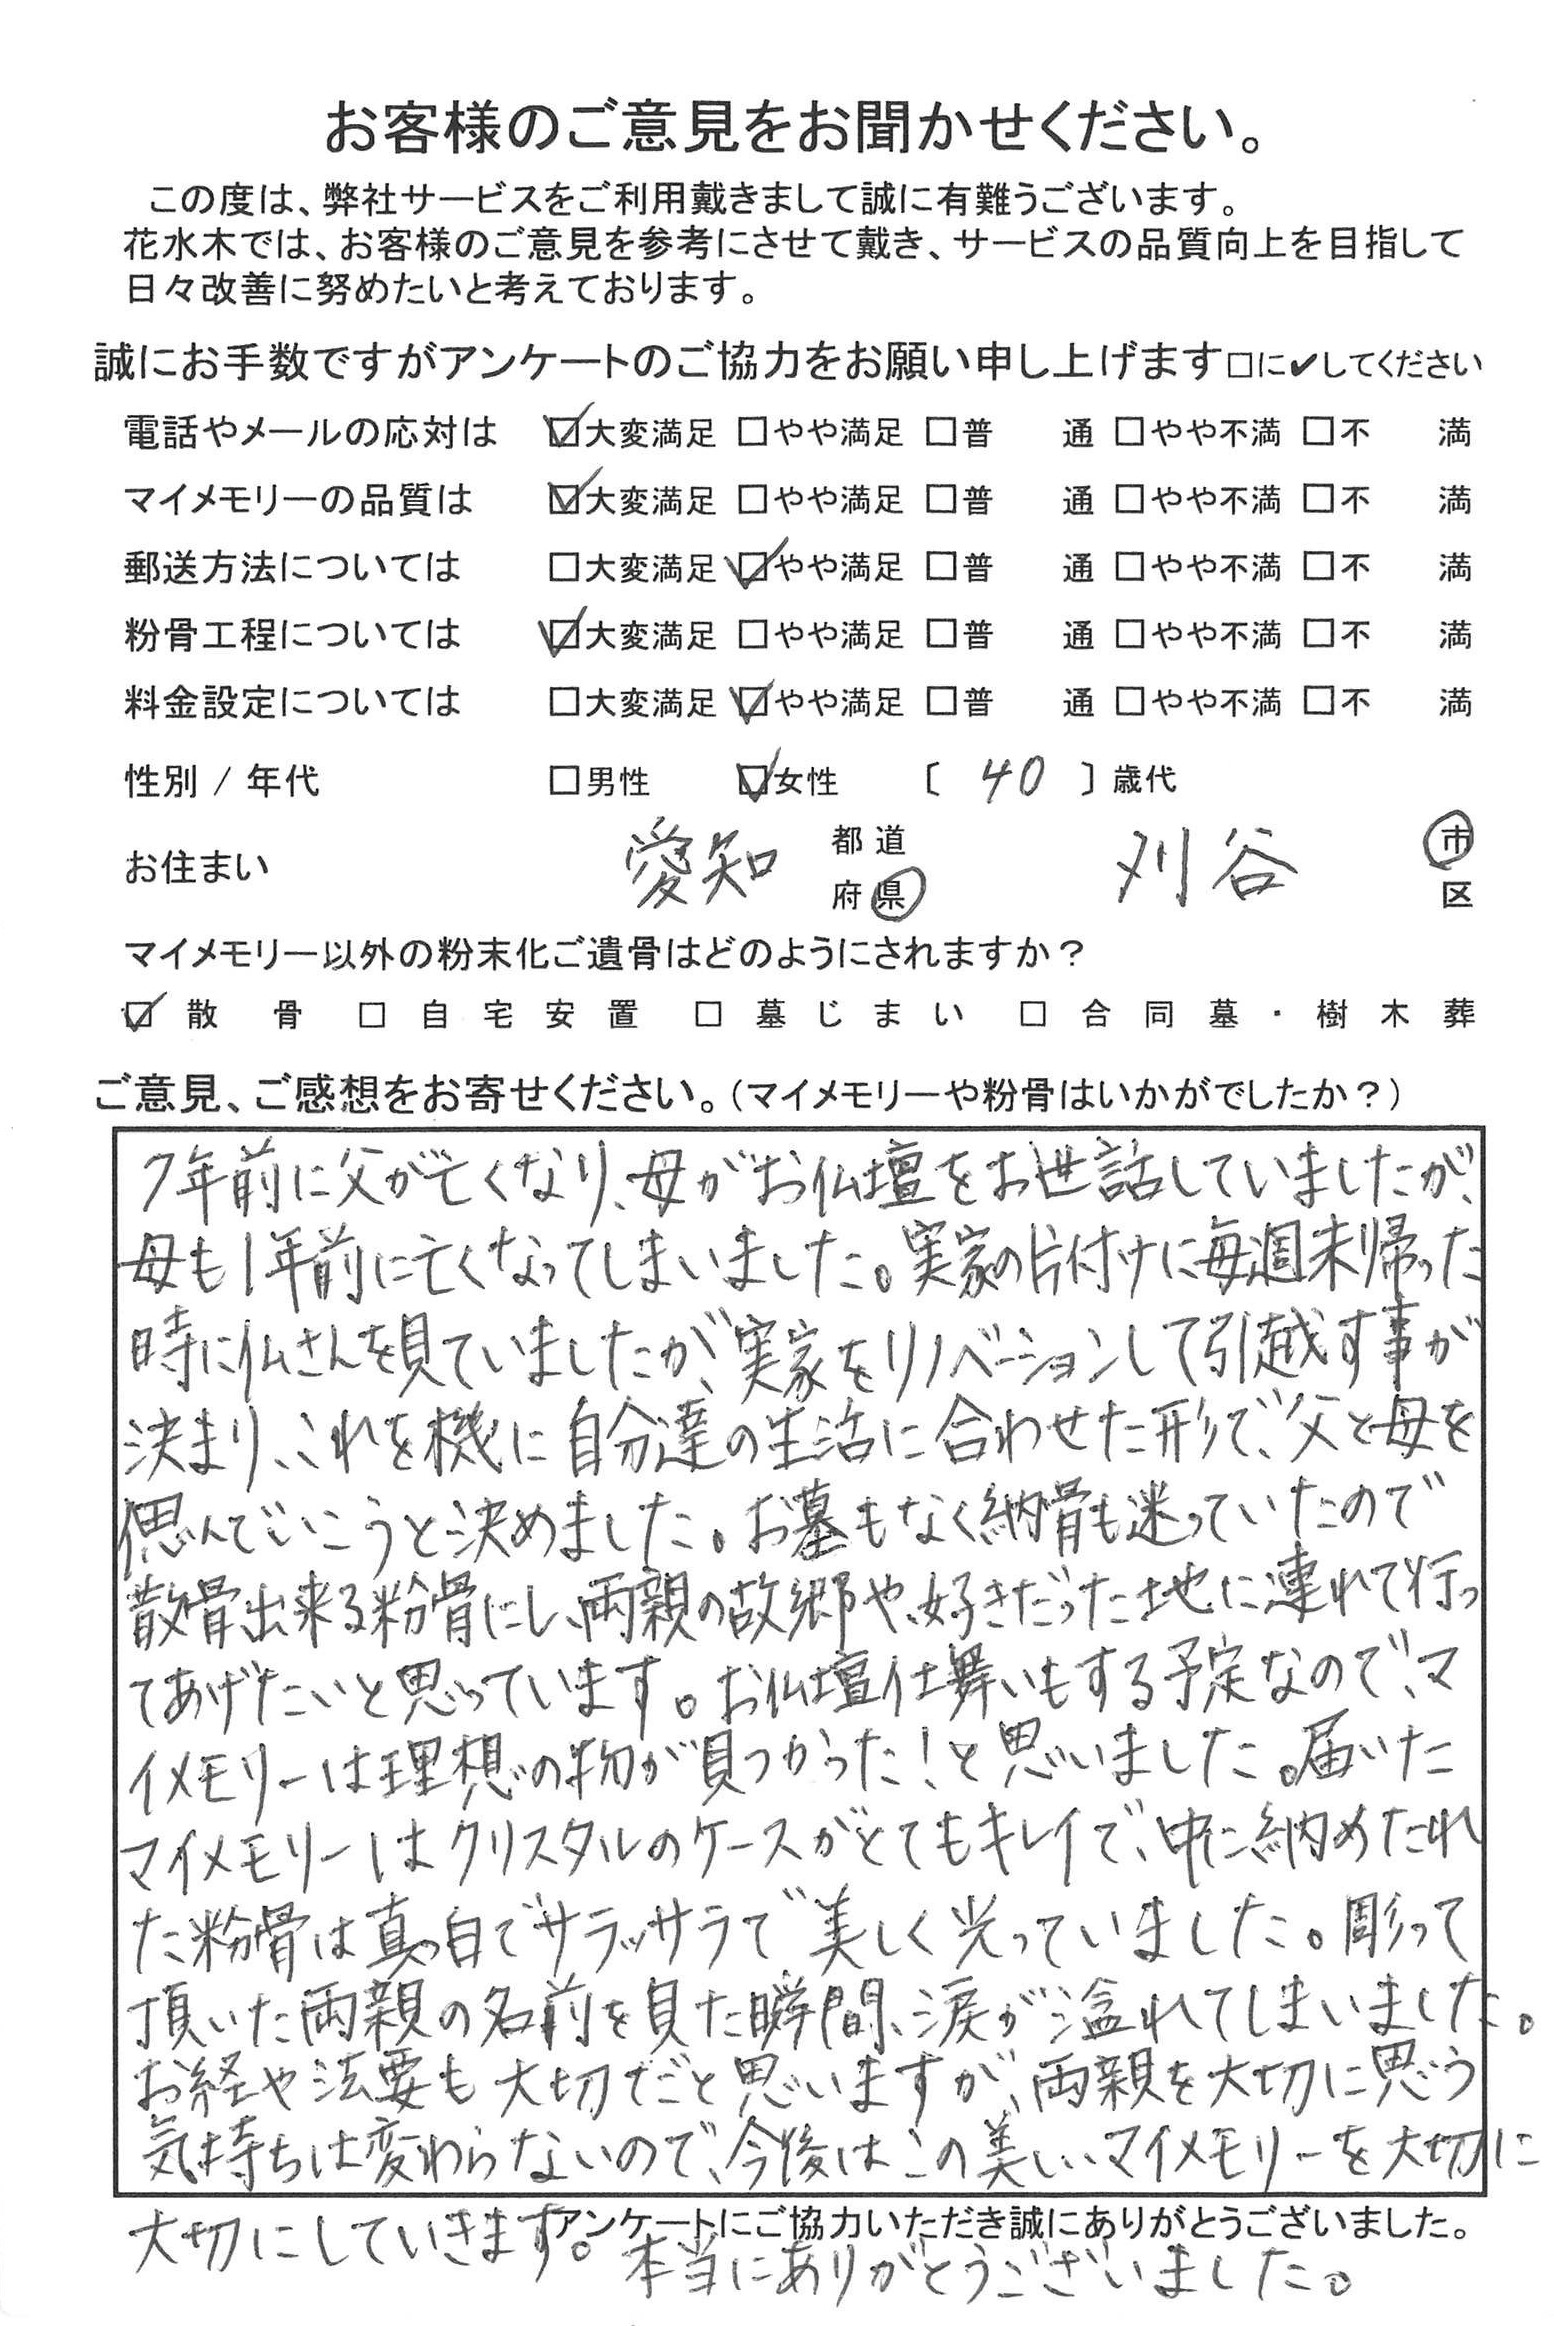 お客様のご意見をお聞かせください。
この度は、弊社サービスをご利用戴きまして誠に有難うございます。
花水木では、お客様のご意見を参考にさせて戴き、サービスの品質向上を目指して
日々改善に努めたいと考えております。
誠にお手数ですがアンケートのご協力をお願い申し上げます□に✔してください
電話やメールの応対は ☑大変満足 □やや満足 □普 通 □やや不満 □不 満
マイメモリーの品質は ☑大変満足 □やや満足 □普 通 □やや不満 □不 満
郵送方法については □大変満足 ☑やや満足 □普 通 □やや不満 □不 満
粉骨工程については ☑大変満足 □やや満足 □普 通 □やや不満 □不 満
料金設定については □大変満足 ☑やや満足 □普 通 □やや不満 □不 満
性別 / 年代 □男性 ☑女性 〔 40 〕歳代
お住まい 愛知 都道府県 刈谷 市区
マイメモリー以外の粉末化ご遺骨はどのようにされますか？
☑散骨 □自宅安置 □墓じまい □合同墓・樹木葬
ご意見、ご感想をお寄せください。（マイメモリーや粉骨はいかがでしたか？）
7年前に父が亡くなり、母がお仏壇をお世話していましたが、
母も1年前に亡くなってしまいました。実家の片付けに毎週末帰った
時に仏さんを見ていましたが、実家をリノベーションして引越す事が
決まり、これを機に自分達の生活に合わせた形で、父と母を
偲んでいこうと決めました。お墓もなく納骨も迷っていたので
散骨出来る粉骨にし、両親の故郷や、好きだった土地に連れて行っ
てあげたいと思っています。お仏壇仕舞いもする予定なので、マ
イメモリーは理想の物が見つかった！と思いました。届いた
マイメモリーはクリスタルのケースがとてもキレイで、中に納めたれ
た粉骨は真っ白でサラッサラで美しく光っていました。彫って
頂いた両親の名前を見た瞬間、涙が溢れてしまいました。
お経や法要も大切だと思いますが、両親を大切に思う
気持ちは変わらないので、今後はこの美しいマイメモリーを大切に
アンケートにご協力いただき誠にありがとうございました。
大切にしていきます。本当にありがとうございました。